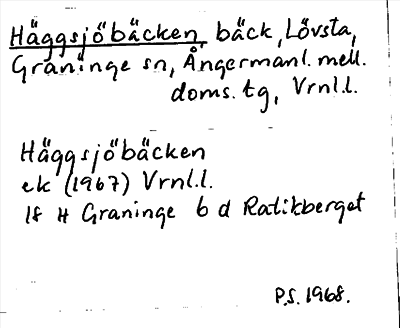 Häggsjöbäcken, bäck, Lövsta,
Graninge sn, Ångermanl. mell.
doms. tg, Vrnl.l.
Häggsjöbäcken
ek (1967) Vrnl.l.
18 H Graninge 6 d Ratikberget
P.S. 1968.